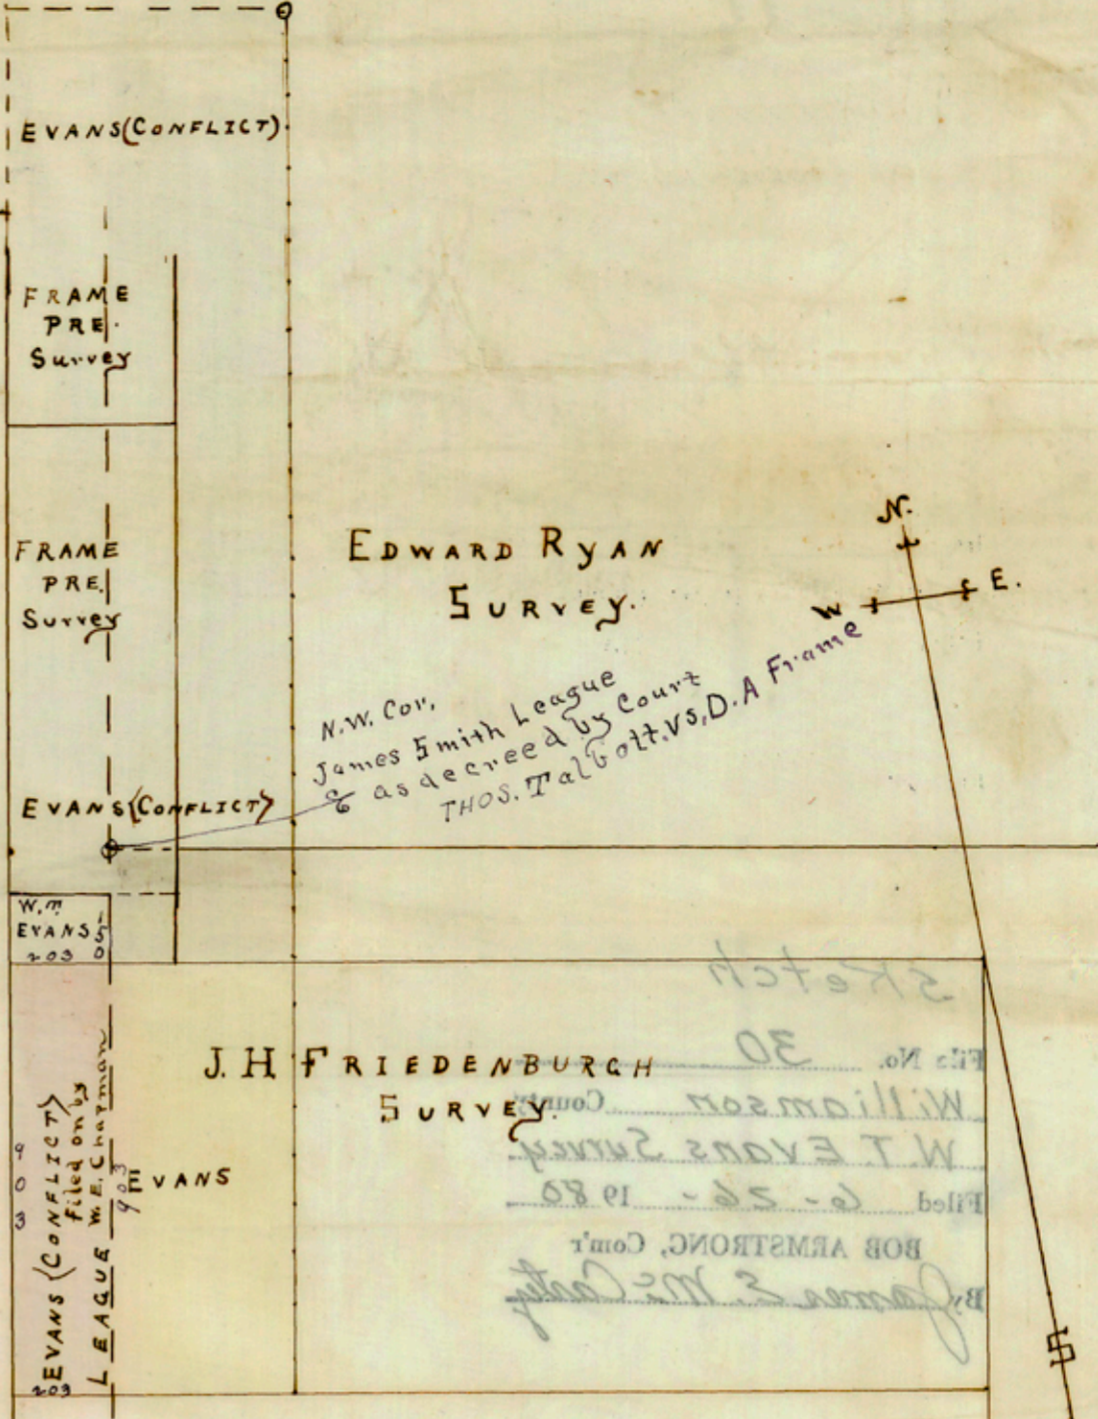 EVANS (CONFLICT)
FRAME
PRE.
Survey
FRAME
PRE.
Survey
EDWARD RYAN
SURVEY.
N.
W
E.
S
N.W. Cor.
James Smith League
as decreed by Court
THOS. Talbott. VS, D.A Frame
EVANS (CONFLICT)
W.T.
EVANS
203
50
J. H FRIEDENBURGH
SURVEY.
EVANS
903
EVANS (CONFLICT)
Filed on by
W.E. Charman
LEAGUE
903
203
Sketch
File No. 30
Williamson County
W.T. Evans Survey.
Filed 6-26- 1980
BOB ARMSTRONG, Com'r
By James E. McCasty